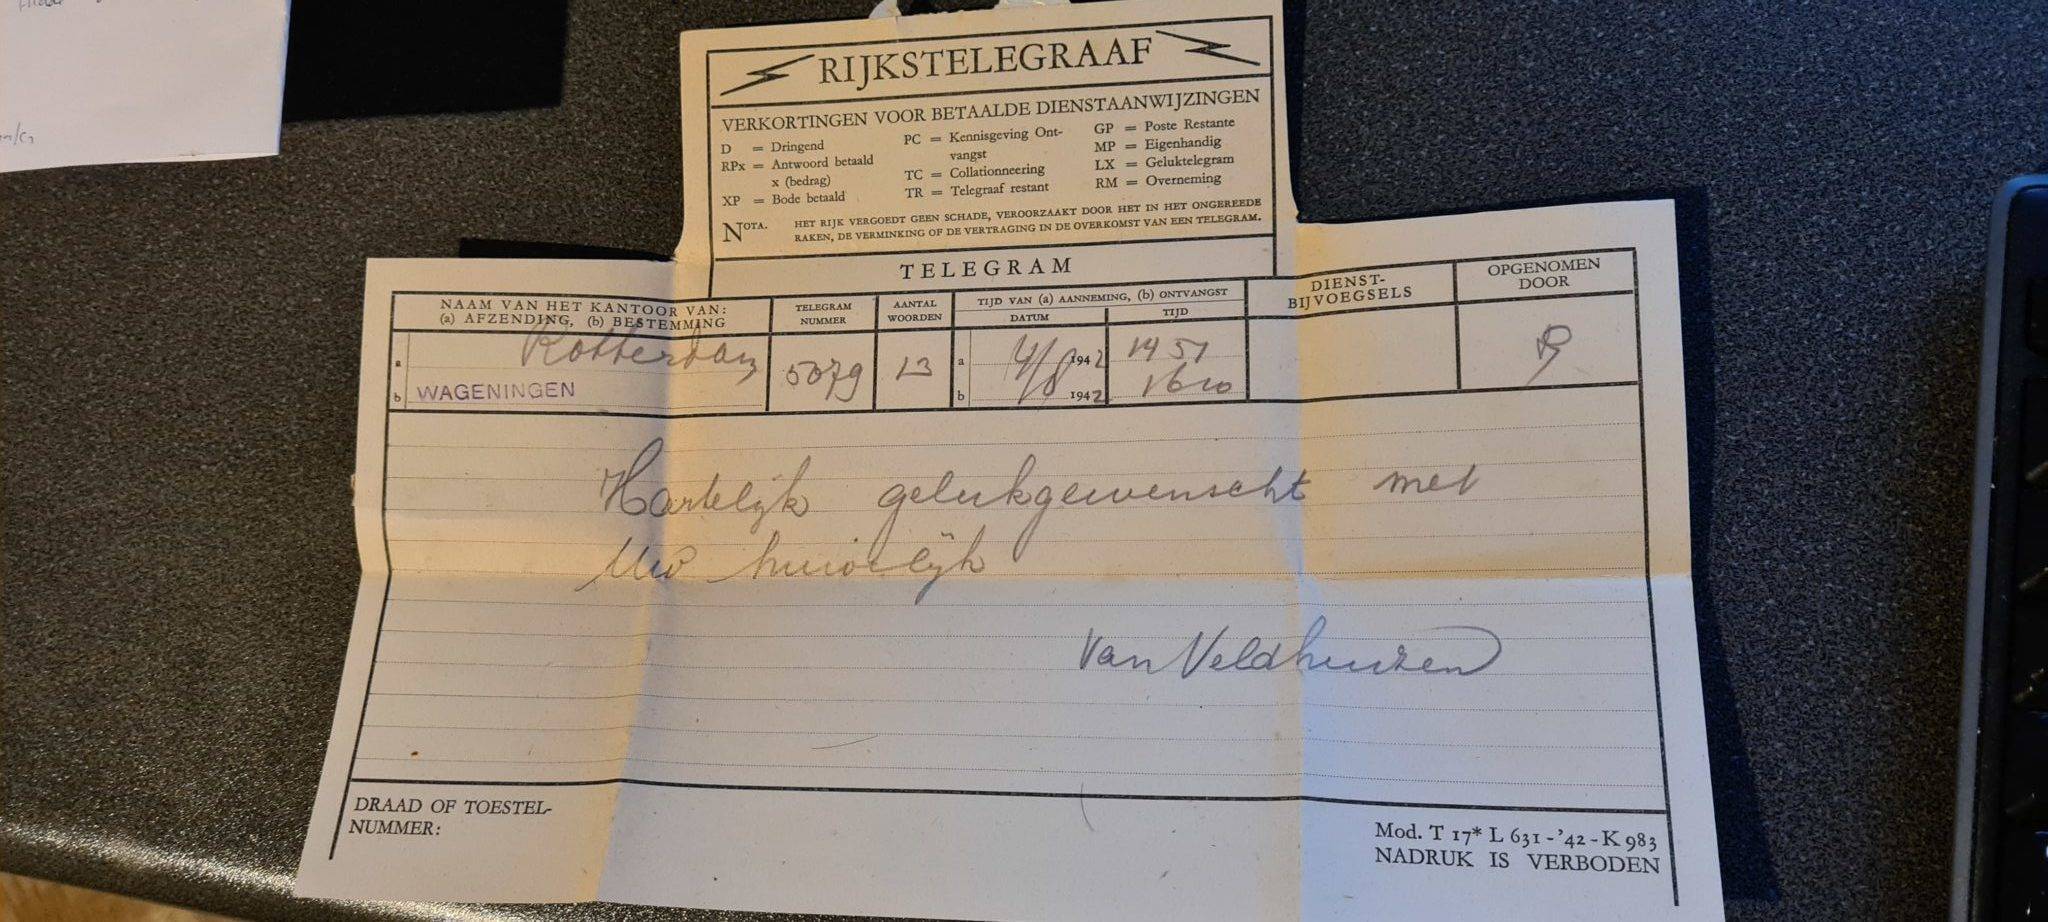 RIJKSTELEGRAAF
VERKORTINGEN VOOR BETAALDE DIENSTAANWIJZINGEN
D = Dringend
RPx = Antwoord betaald
x (bedrag)
XP = Bode betaald
PC = Kennisgeving Ont-
vangst
TC = Collationneering
TR = Telegraaf restant
GP = Poste Restante
MP = Eigenhandig
LX = Geluktelegram
RM = Overneming
NOTA. HET RIJK VERGOEDT GEEN SCHADE, VEROORZAAKT DOOR HET IN HET ONGEREEDE
RAKEN, DE VERMINKING OF DE VERTRAGING IN DE OVERKOMST VAN EEN TELEGRAM.
TELEGRAM
NAAM VAN HET KANTOOR VAN:
(a) AFZENDING, (b) BESTEMMING
TELEGRAM
NUMMER
AANTAL
WOORDEN
TIJD VAN (a) AANNEMING, (b) ONTVANGST
DATUM
TIJD
DIENST-
BIJVOEGSELS
OPGENOMEN
DOOR
a Rotterdam
b WAGENINGEN
5079
13
a 4/8 1942 1451
b 4/8 1942 1610
Hartelijk gelukgewenscht met
Uw huwelijk
Van Veldhuizen
DRAAD OF TOESTEL-
NUMMER:
Mod. T 17* L 631 - '42 - K 983
NADRUK IS VERBODEN